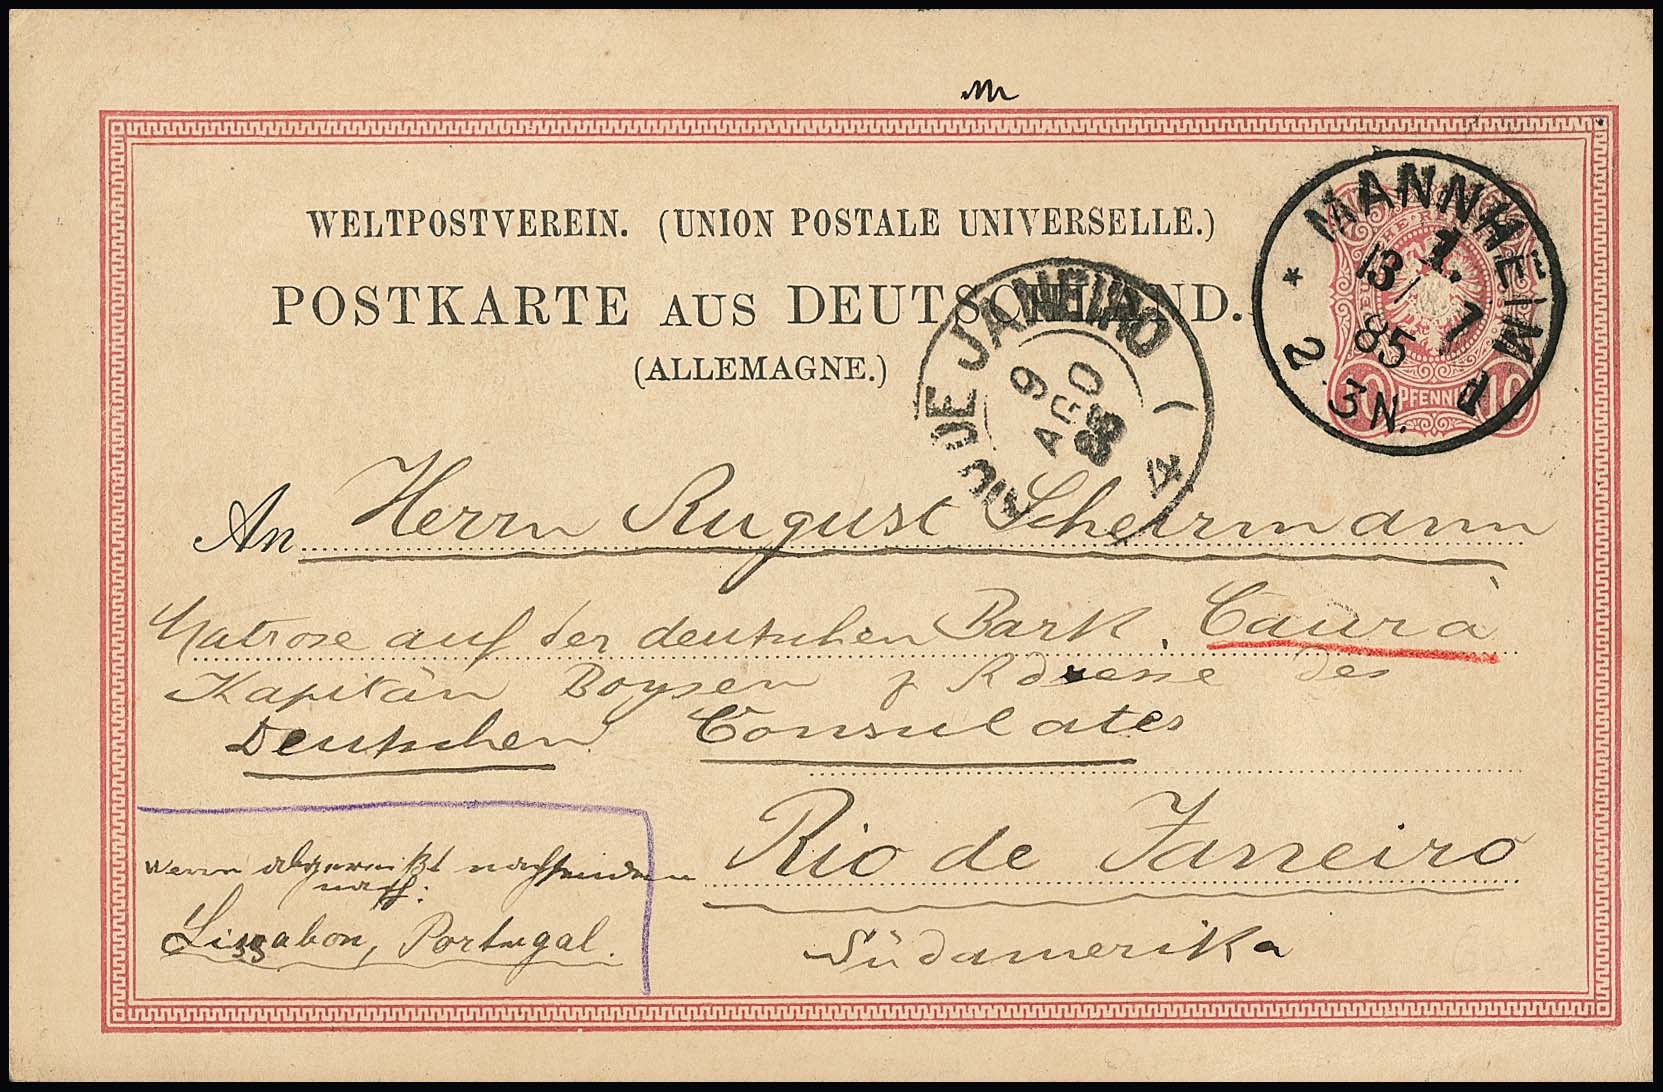 WELTPOSTVEREIN. (UNION POSTALE UNIVERSELLE.)
POSTKARTE AUS DEUTSCHLAND.
(ALLEMAGNE.)
MANNHEIM 1.
13/7
85
2-3N.
* d
10 PFENNIG 10
RIO DE JANEIRO
9 AGO 85
4
An Herrn August Scheurmann
Matrose auf der deutschen Bark. Caura
Kapitän Boysen p Adresse des
Deutschen Consulates
Rio de Janeiro
Südamerika
Wenn abgereißt nachsenden
nach:
Lissabon, Portugal.